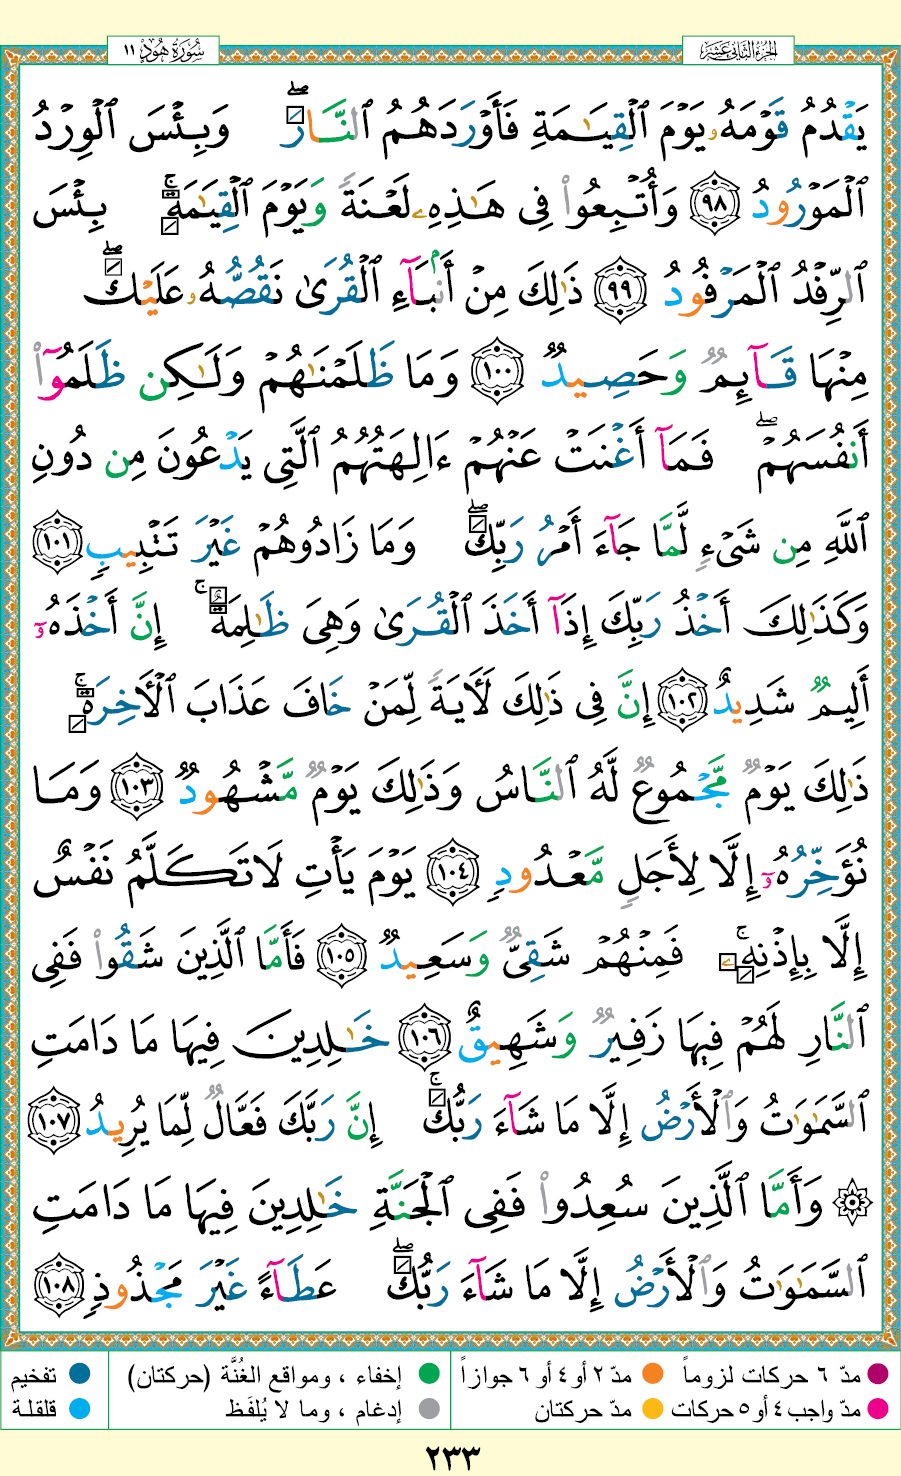 الجزء الثاني عشر
سورة هود ١١
يَقْدُمُ قَوْمَهُۥ يَوْمَ ٱلْقِيَـٰمَةِ فَأَوْرَدَهُمُ ٱلنَّارَ ۖ وَبِئْسَ ٱلْوِرْدُ
ٱلْمَوْرُودُ ٩٨ وَأُتْبِعُوا۟ فِى هَـٰذِهِۦ لَعْنَةً وَيَوْمَ ٱلْقِيَـٰمَةِ ۚ بِئْسَ
ٱلرِّفْدُ ٱلْمَرْفُودُ ٩٩ ذَٰلِكَ مِنْ أَنۢبَآءِ ٱلْقُرَىٰ نَقُصُّهُۥ عَلَيْكَ ۖ
مِنْهَا قَآئِمٌ وَحَصِيدٌ ١٠٠ وَمَا ظَلَمْنَـٰهُمْ وَلَـٰكِن ظَلَمُوٓا۟
أَنفُسَهُمْ ۖ فَمَآ أَغْنَتْ عَنْهُمْ ءَالِهَتُهُمُ ٱلَّتِى يَدْعُونَ مِن دُونِ
ٱللَّهِ مِن شَىْءٍ لَّمَّا جَآءَ أَمْرُ رَبِّكَ ۖ وَمَا زَادُوهُمْ غَيْرَ تَتْبِيبٍ ١٠١
وَكَذَٰلِكَ أَخْذُ رَبِّكَ إِذَآ أَخَذَ ٱلْقُرَىٰ وَهِىَ ظَـٰلِمَةٌ ۚ إِنَّ أَخْذَهُۥٓ
أَلِيمٌ شَدِيدٌ ١٠٢ إِنَّ فِى ذَٰلِكَ لَـَٔايَةً لِّمَنْ خَافَ عَذَابَ ٱلْـَٔاخِرَةِ ۚ
ذَٰلِكَ يَوْمٌ مَّجْمُوعٌ لَّهُ ٱلنَّاسُ وَذَٰلِكَ يَوْمٌ مَّشْهُودٌ ١٠٣ وَمَا
نُؤَخِّرُهُۥٓ إِلَّا لِأَجَلٍ مَّعْدُودٍ ١٠٤ يَوْمَ يَأْتِ لَا تَكَلَّمُ نَفْسٌ
إِلَّا بِإِذْنِهِۦ ۚ فَمِنْهُمْ شَقِىٌّ وَسَعِيدٌ ١٠٥ فَأَمَّا ٱلَّذِينَ شَقُوا۟ فَفِى
ٱلنَّارِ لَهُمْ فِيهَا زَفِيرٌ وَشَهِيقٌ ١٠٦ خَـٰلِدِينَ فِيهَا مَا دَامَتِ
ٱلسَّمَـٰوَٰتُ وَٱلْأَرْضُ إِلَّا مَا شَآءَ رَبُّكَ ۚ إِنَّ رَبَّكَ فَعَّالٌ لِّمَا يُرِيدُ ١٠٧
۞ وَأَمَّا ٱلَّذِينَ سُعِدُوا۟ فَفِى ٱلْجَنَّةِ خَـٰلِدِينَ فِيهَا مَا دَامَتِ
ٱلسَّمَـٰوَٰتُ وَٱلْأَرْضُ إِلَّا مَا شَآءَ رَبُّكَ ۖ عَطَآءً غَيْرَ مَجْذُوذٍ ١٠٨
مدّ ٦ حركات لزوماً مدّ ٢ أو ٤ أو ٦ جوازاً إخفاء ، ومواقع الغُنَّة (حركتان) تفخيم
مدّ واجب ٤ أو ٥ حركات مدّ حركتان إدغام ، وما لا يُلفَظ قلقلة
٢٣٣